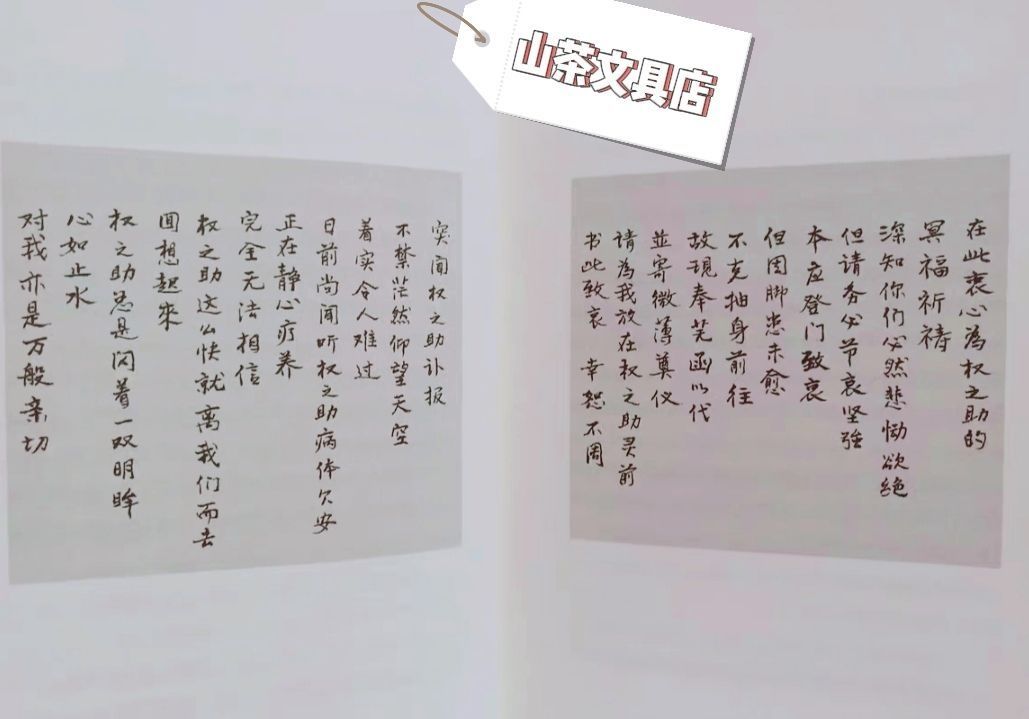 山茶文具店
突闻权之助讣报
不禁茫然仰望天空
着实令人难过
日前尚闻听权之助病体欠安
正在静心疗养
完全无法相信
权之助这么快就离我们而去
回想起來
权之助总是闪着一双明眸
心如止水
对我亦是万般亲切
在此衷心為权之助的
冥福祈祷
深知你们必然悲恸欲绝
但请务必节哀坚强
本应登门致哀
但因脚患未愈
不克抽身前往
故现奉芜函以代
並寄微薄奠仪
请為我放在权之助灵前
书此致哀 幸恕不周